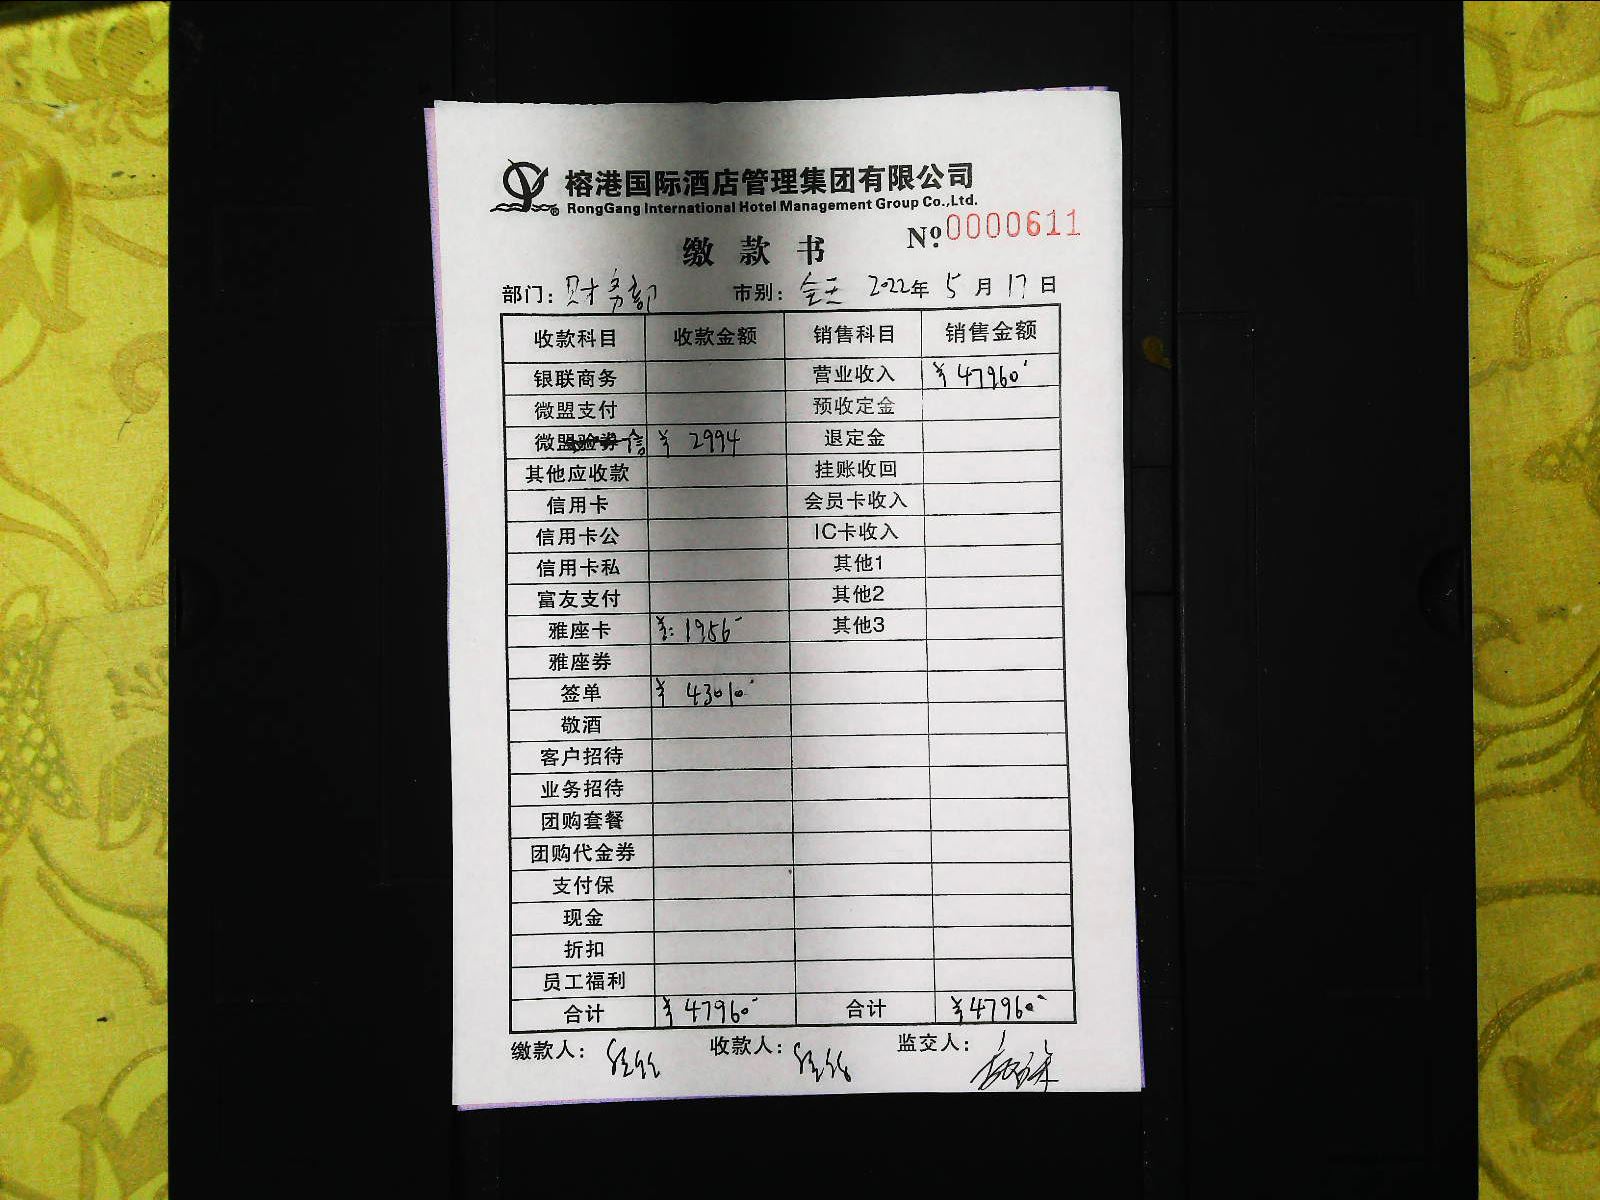 榕港国际酒店管理集团有限公司
RongGang International Hotel Management Group Co.,Ltd.
缴款书 №0000611
部门：财务部 市别：全天 2022年5月17日
收款科目 收款金额 销售科目 销售金额
银联商务 营业收入 ¥47960
微盟支付 预收定金
微信 ¥ 2994 退定金
其他应收款 挂账收回
信用卡 会员卡收入
信用卡公 IC卡收入
信用卡私 其他1
富友支付 其他2
雅座卡 ¥:1956 其他3
雅座券
签单 ¥ 43010
敬酒
客户招待
业务招待
团购套餐
团购代金券
支付保
现金
折扣
员工福利
合计 ¥47960 合计 ¥47960
缴款人： 收款人： 监交人：